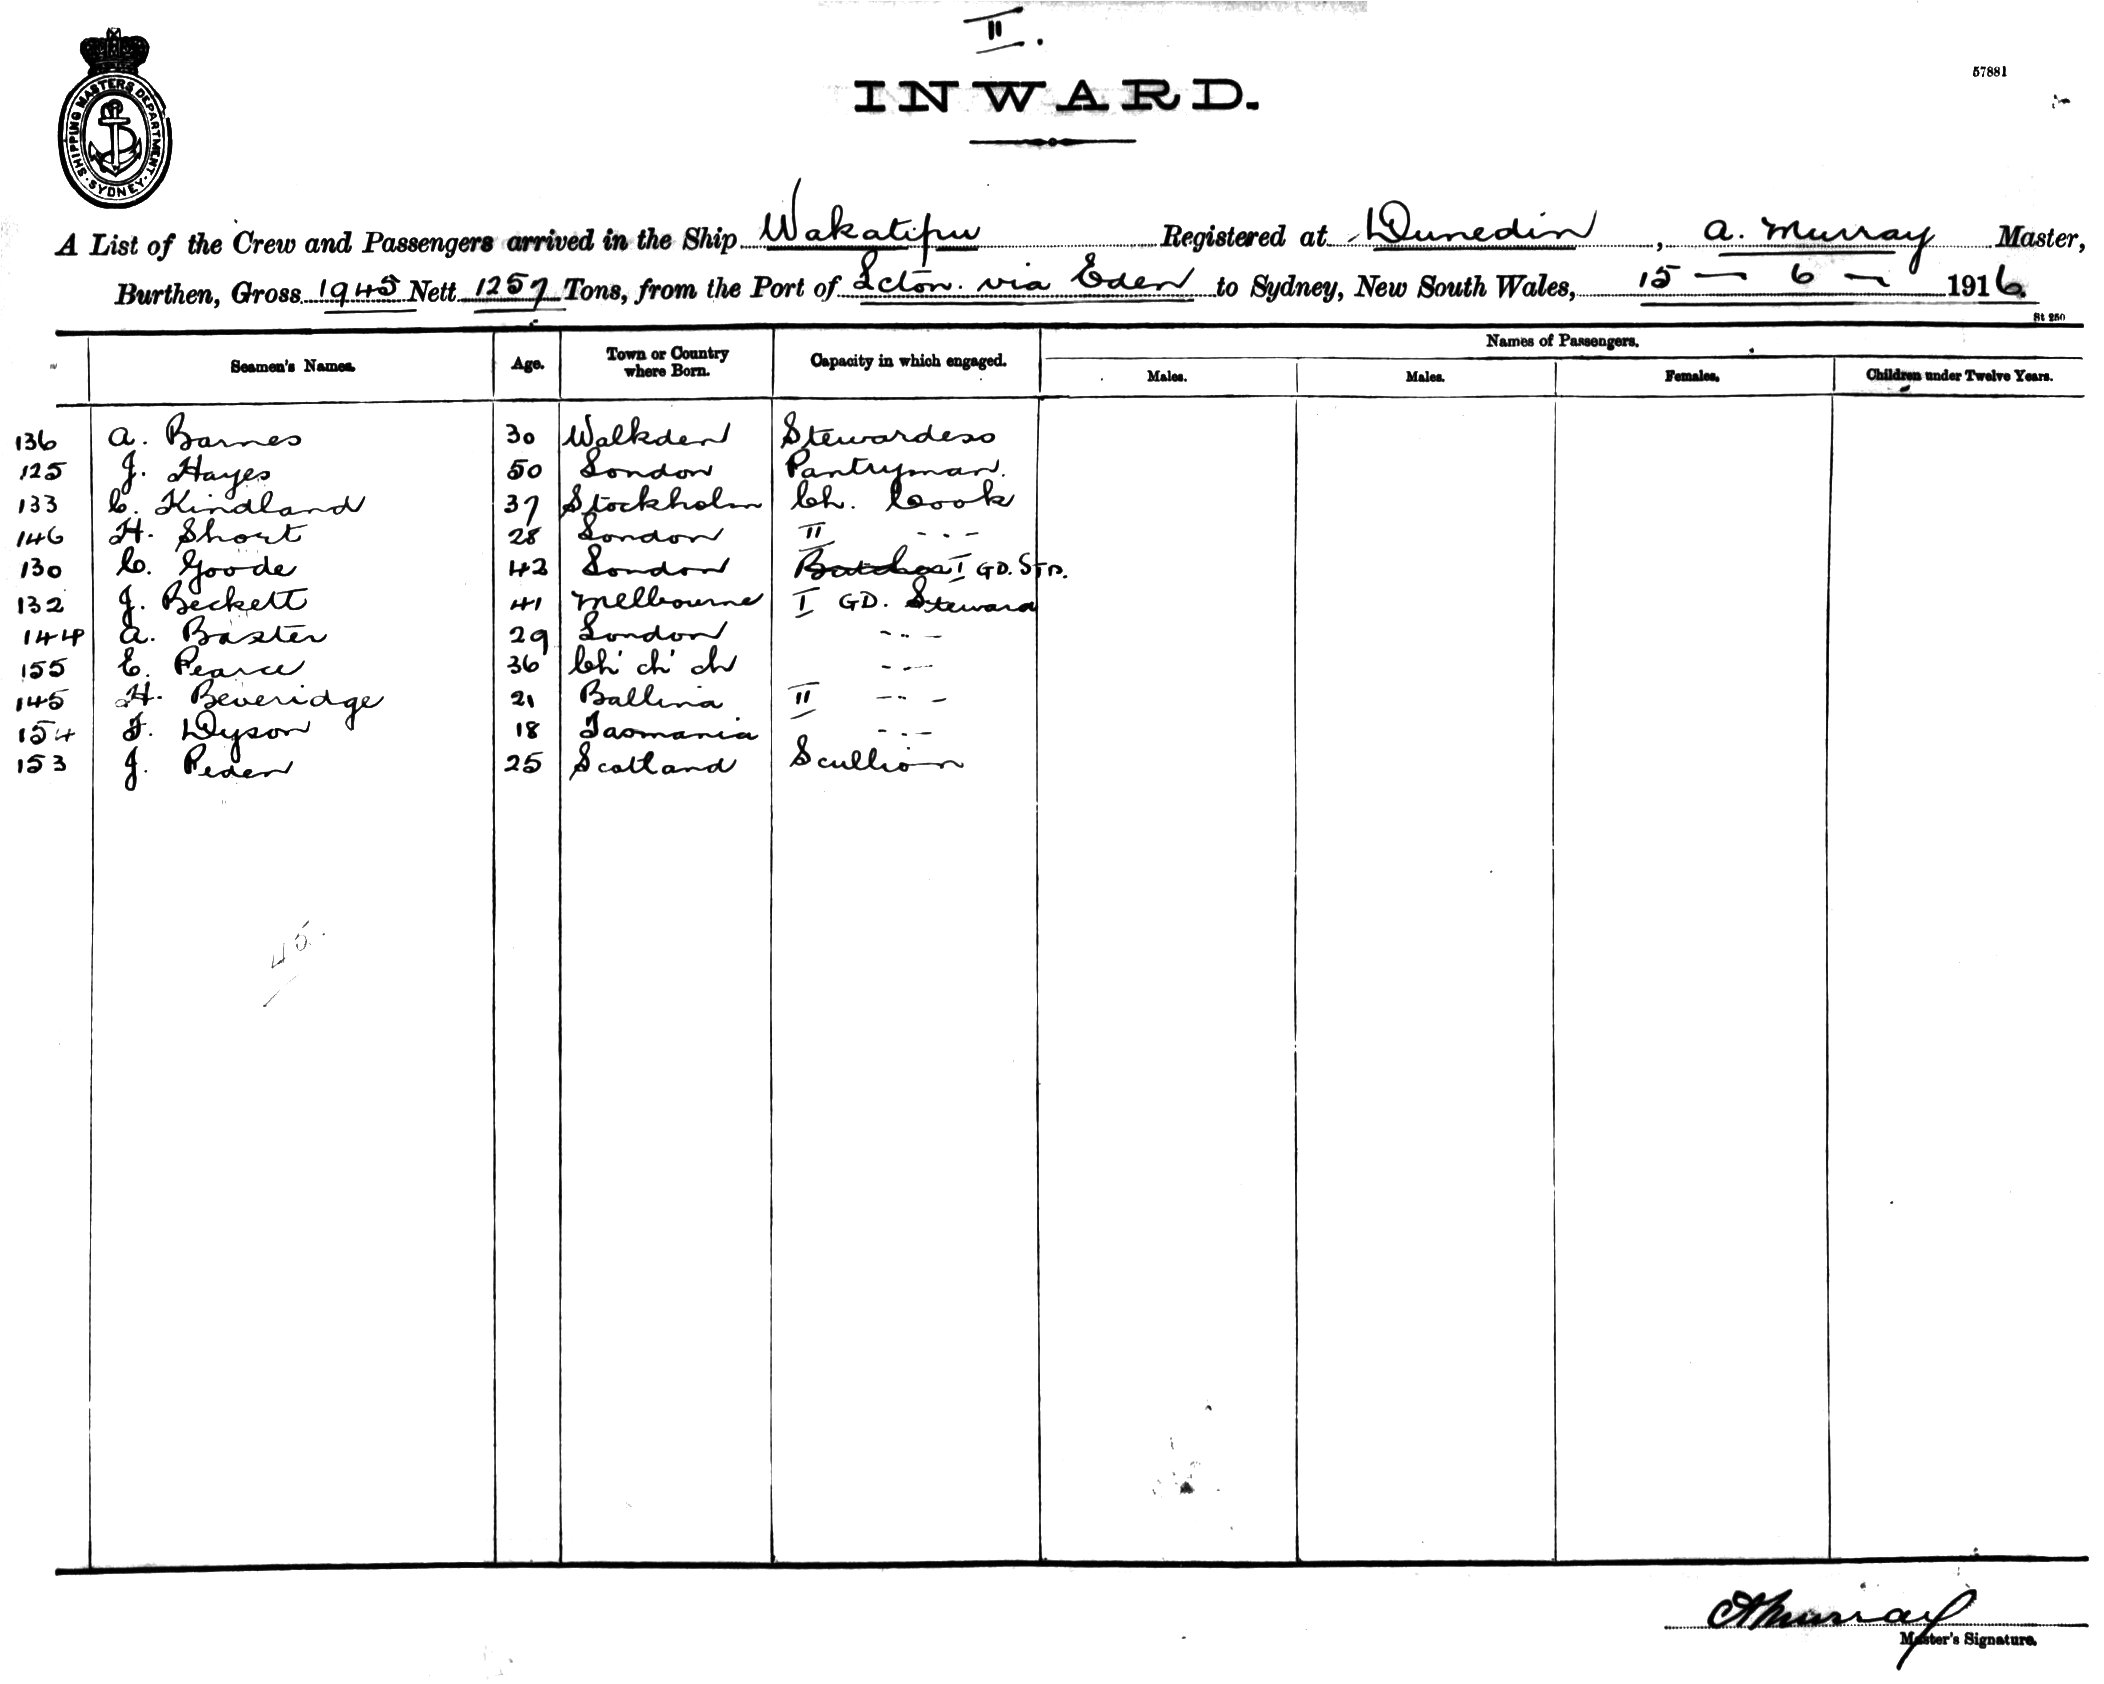 II.
INWARD.
57881
SHIPPING MASTERS DEPARTMENT · SYDNEY ·
A List of the Crew and Passengers arrived in the Ship Wakatipu Registered at Dunedin, A. Murray Master,
Burthen, Gross 1945 Nett 1257 Tons, from the Port of Lcton. via Eden to Sydney, New South Wales, 15 - 6 - 1916.
St 250
Seamen's Names. Age. Town or Country where Born. Capacity in which engaged. Names of Passengers.
Males. Males. Females. Children under Twelve Years.
136 A. Barnes 30 Walkden Stewardess
125 J. Hayes 50 London Pantryman.
133 C. Kindland 37 Stockholm Ch. Cook
146 H. Short 28 London II - . . -
130 C. Goode 42 London Butcher I GD. STD.
132 J. Beckett 41 Melbourne I GD. Steward
144 A. Baxter 29 London - . . -
155 E. Pearce 36 Ch' ch' ch - . . -
145 H. Beveridge 21 Ballina II - . . -
154 F. Dyson 18 Tasmania - . . -
153 J. Peden 25 Scotland Scullion
45.
A Murray
Master's Signature.